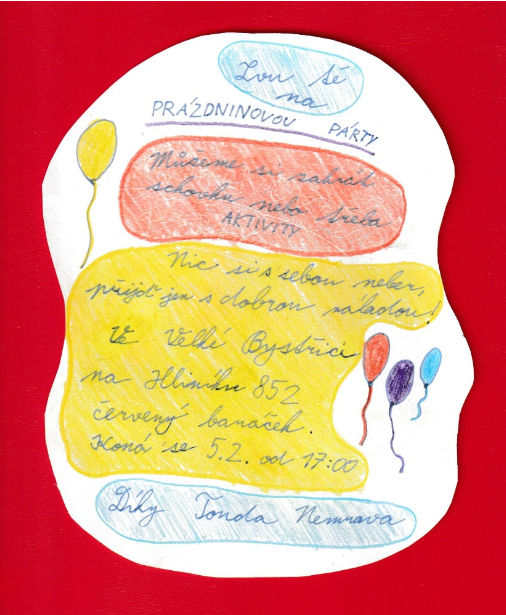 Zvu tě
na
PRÁZDNINOVOU PÁRTY
Můžeme si zahrát
schovku nebo třeba
AKTIVITY
Nic si s sebou neber,
přijď jen s dobrou náladou!
Ve Velké Bystřici
na Hliníku 852
červený baráček.
Koná se 5.2. od 17:00
Díky Tonda Nemrava